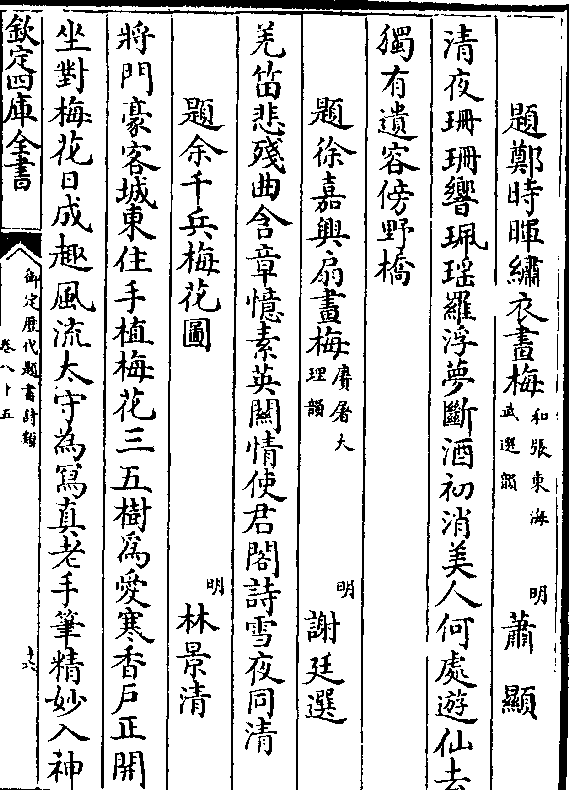 題鄭時暉繡衣畫梅 和張東海武選韻 明 蕭顯
清夜珊珊響珮瑤羅浮夢斷酒初消美人何處遊仙去
獨有遺容傍野橋
題徐嘉興扇畫梅 賡屠大理韻 明 謝廷選
羌笛悲殘曲含章憶素英關情使君閣詩雪夜同清
題余千兵梅花圖 明 林景清
將門豪客城東住手植梅花三五樹為愛寒香戶正開
坐對梅花日成趣風流太守為寫真老手筆精妙入神
欽定四庫全書
御定歷代題畫詩類
卷八十五
十六